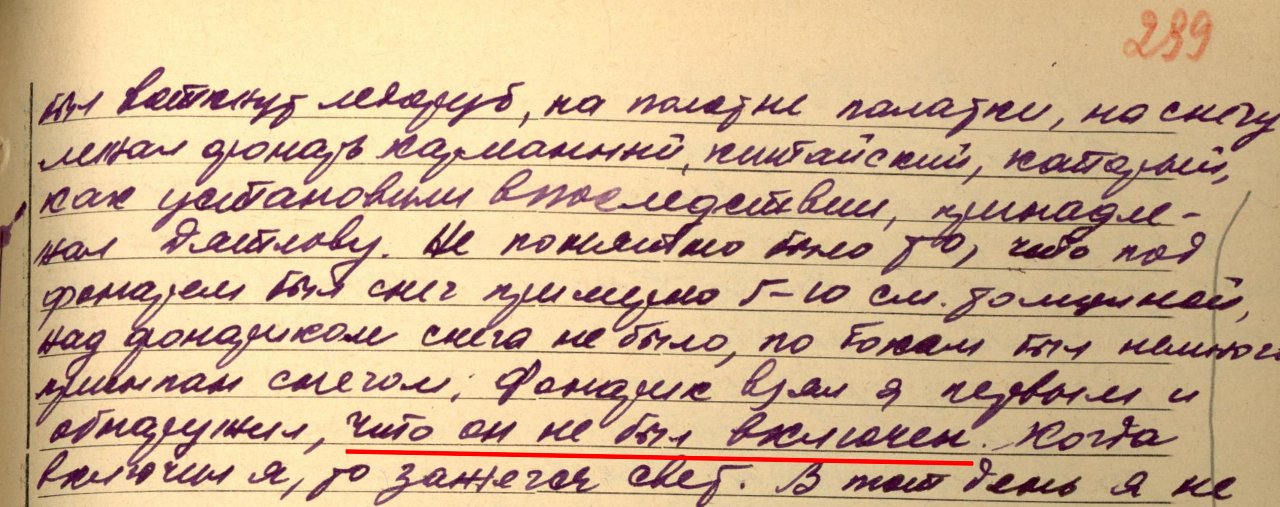 299
был воткнут ледоруб, на полотне палатки, на снегу
лежал фонарь карманный, китайский, который,
как установили впоследствии, принадле-
жал Дятлову. Не понятно было то, что под
фонарем был снег примерно 5-10 см. толщиной,
над фонариком снега не было, по бокам был немного
присыпан снегом; Фонарик взял я первым и
обнаружил, что он не был включен. Когда
включил я, то зажегся свет. В тот день я не